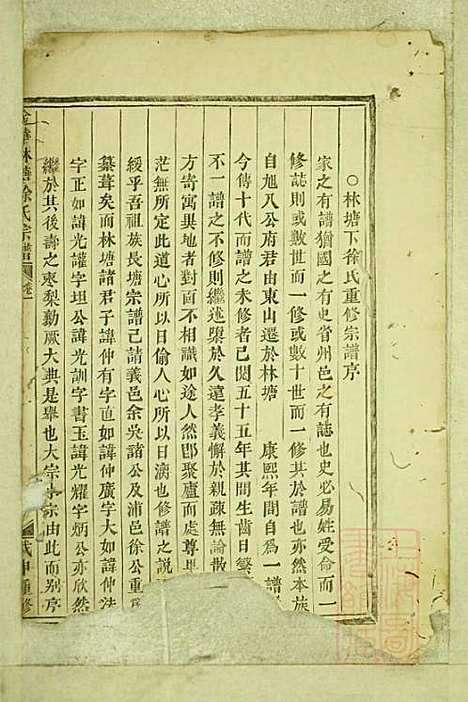 ○林塘下徐氏重修宗譜序
家之有譜猶國之有史省州邑之有誌也史必易姓受命而一
修誌則或數世而一修或數十世而一修其於譜也亦然本族
自旭八公府君由東山遷於林塘　康熙年間自為一譜
今傳十代而譜之未修者已閱五十五年其間生齒日繁
不一譜之不修則繼述墜於久遠孝義懈於親疎無論散
方寄寓異地者對面不相識如途人然卽聚廬而處尊卑
茫無所定此道心所以日偷人心所以日漓也修譜之說
緩乎吾祖族長塘宗譜已請義邑余吳諸公及浦邑徐公重
纂葺矣而林塘諸君子諱仲有字直如諱仲廣字大如諱仲法
字正如諱光讙字坦公諱光訓字書玉諱光耀字炳公亦欣然
繼於其後壽之棗梨勷厥大典是舉也大宗小宗由此而別序
金華林塘徐氏宗譜　卷
戊申重修